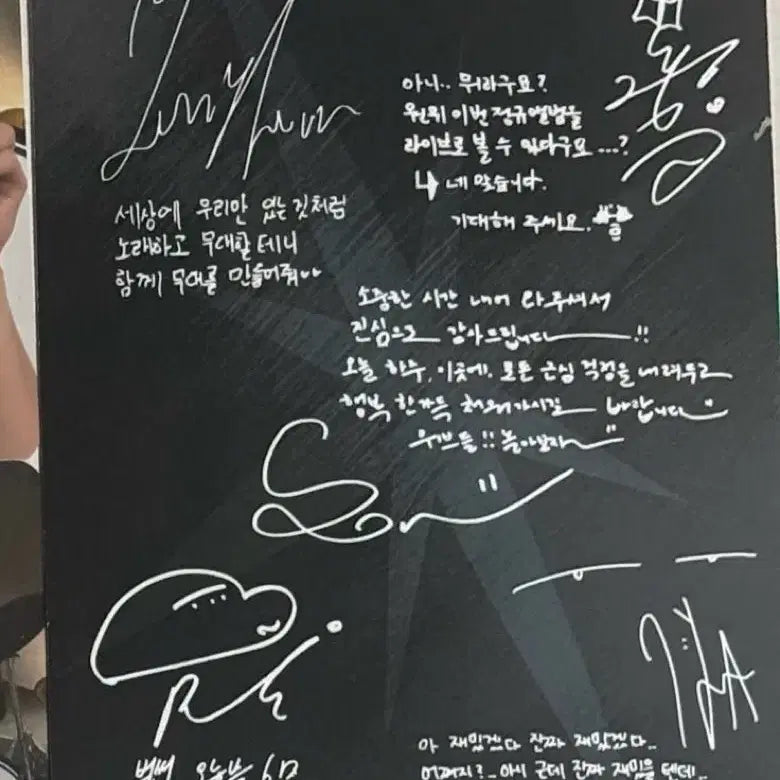 아니.. 뭐라구요?
원위 이번 정규앨범을
라이브로 볼 수 있다구요...?
↳ 네 맞습니다.
기대해 주세요.
세상에 우리만 있는 것처럼
노래하고 무대할테니
함께 무대를 만들어줘
소중한 시간 내어 와주셔서
진심으로 감사드립니다!!
오늘 하루, 이곳에, 모든 근심 걱정을 내려두고
행복 한가득 채워가시길 바랍니다
위브들!! 놀아보자
아 재밌겠다 진짜 재밌겠다..
어쩌지?..아시 근데 진짜 재밌을 텐데..
벌써 오늘